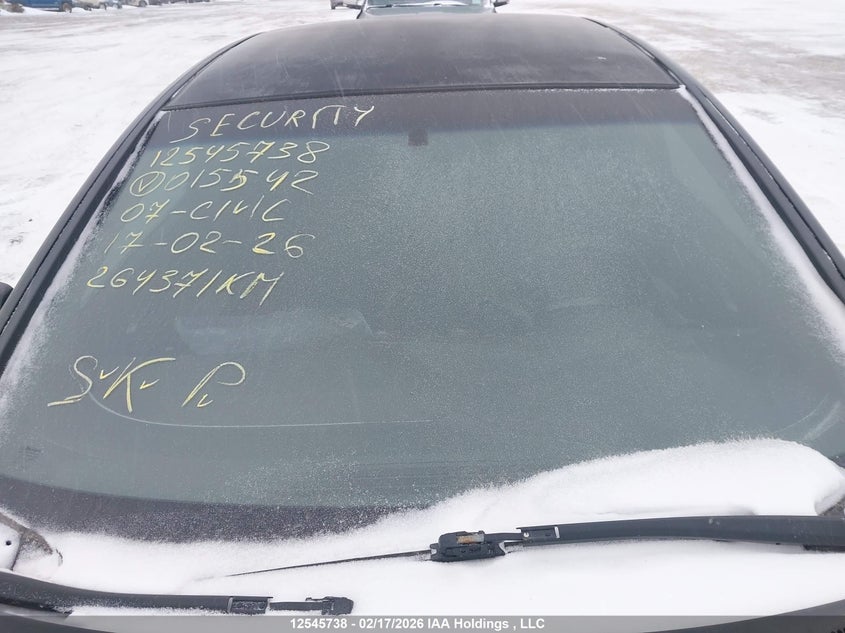 SECURITY
12545738
Ⓥ015542
07-CIVIC
17-02-26
264371KM
S✓K✓ P✓
12545738 - 02/17/2026 IAA Holdings , LLC